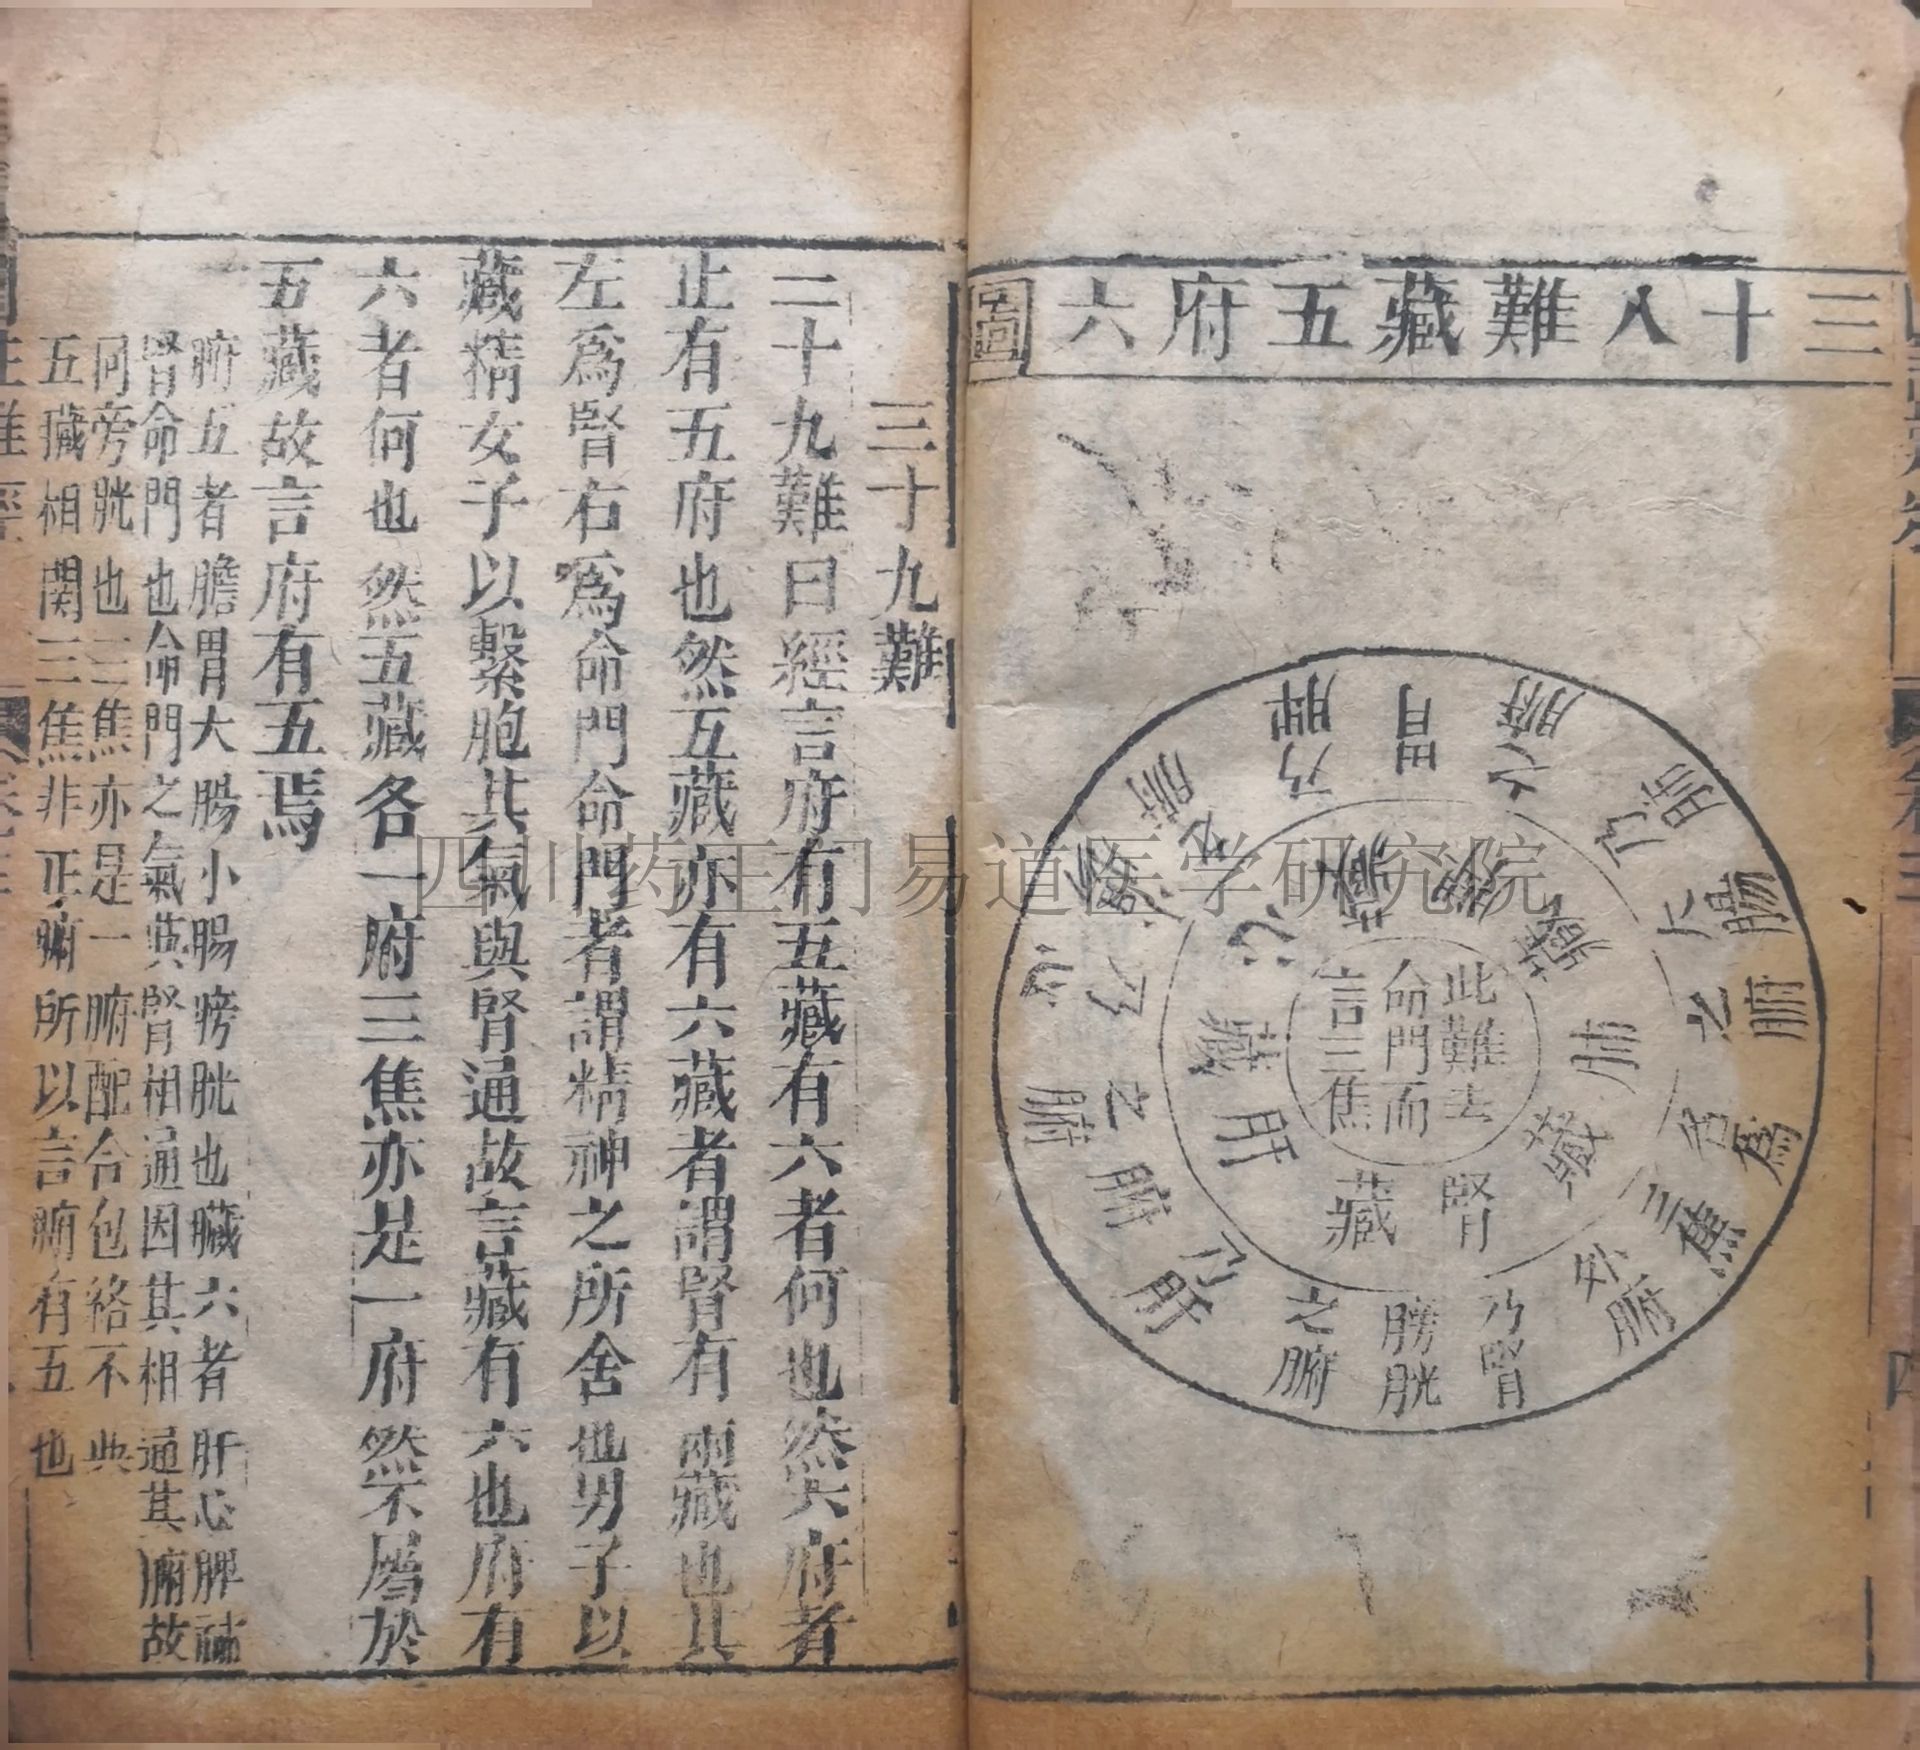 三十八難藏五府六圖
此難去
命門而
言三焦
腎藏
肝藏
心藏
脾藏
肺藏
乃脾
胃
之腑
乃肺
大腸
之腑
名為
三焦
外腑
乃腎
膀胱
之腑
乃肝
之腑
乃心
之腑
三十九難
二十九難曰經言府有五藏有六者何也然六府者
止有五府也然五藏亦有六藏者謂腎有兩藏也其
左爲腎右爲命門命門者謂精神之所舍也男子以
藏精女子以繫胞其氣與腎通故言藏有六也府有
六者何也然五藏各一府三焦亦是一府然不屬於
五藏故言府有五焉
腑五者膽胃大腸小腸膀胱也臟六者肝心脾肺
腎命門也命門之氣與腎相通因其相通其腑故
同旁胱也三焦亦是一腑配合包絡不與
五臟相関三焦非正腑所以言腑有五也
四川药王门易道医学研究院